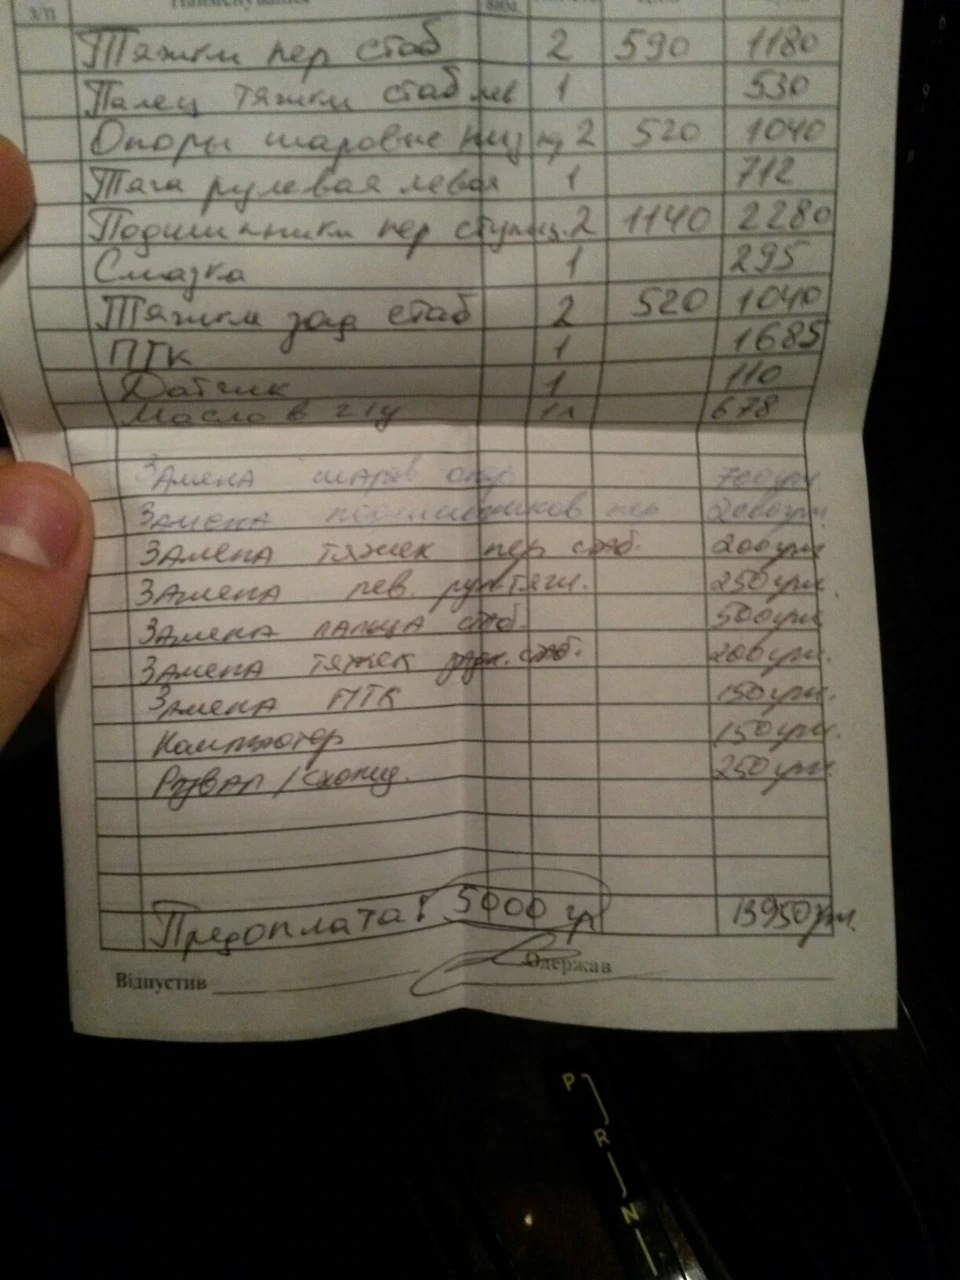 з/п Найменування вим.
Тяжки пер стаб 2 590 1180
Палец тяжки стаб лев 1 530
Опоры шаровые низ 2 520 1040
Тяга рулевая левая 1 712
Подшипники пер ступиц. 2 1140 2280
Смазка 1 295
Тяжки зад стаб 2 520 1040
ПГК 1 1685
Датчик 1 110
Масло в г/у 1л 678
Замена шаров опор 700грн
Замена подшипников пер 2000грн.
Замена тяжек пер стаб. 200грн
Замена лев. рул тяги. 250грн
Замена пальца стаб. 500грн
Замена тяжек задн. стаб. 200грн.
Замена ПГК 150грн.
Компютор 150грн.
Розвал/схожд. 250грн.
Предоплата: 5000 гр 13950грн.
Відпустив Одержав
P
R
N